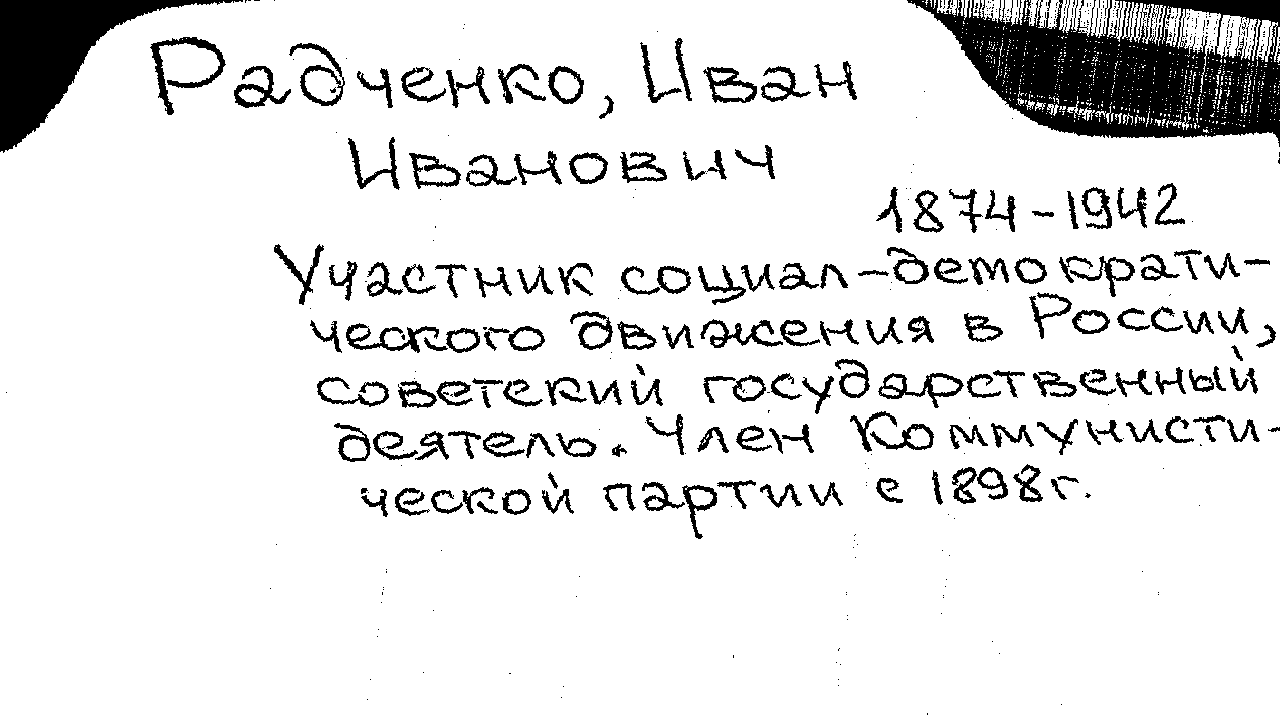 Радченко, Иван
Иванович
1874-1942
Участник социал-демократи-
ческого движения в России,
советский государственный
деятель. Член Коммунисти-
ческой партии с 1898г.